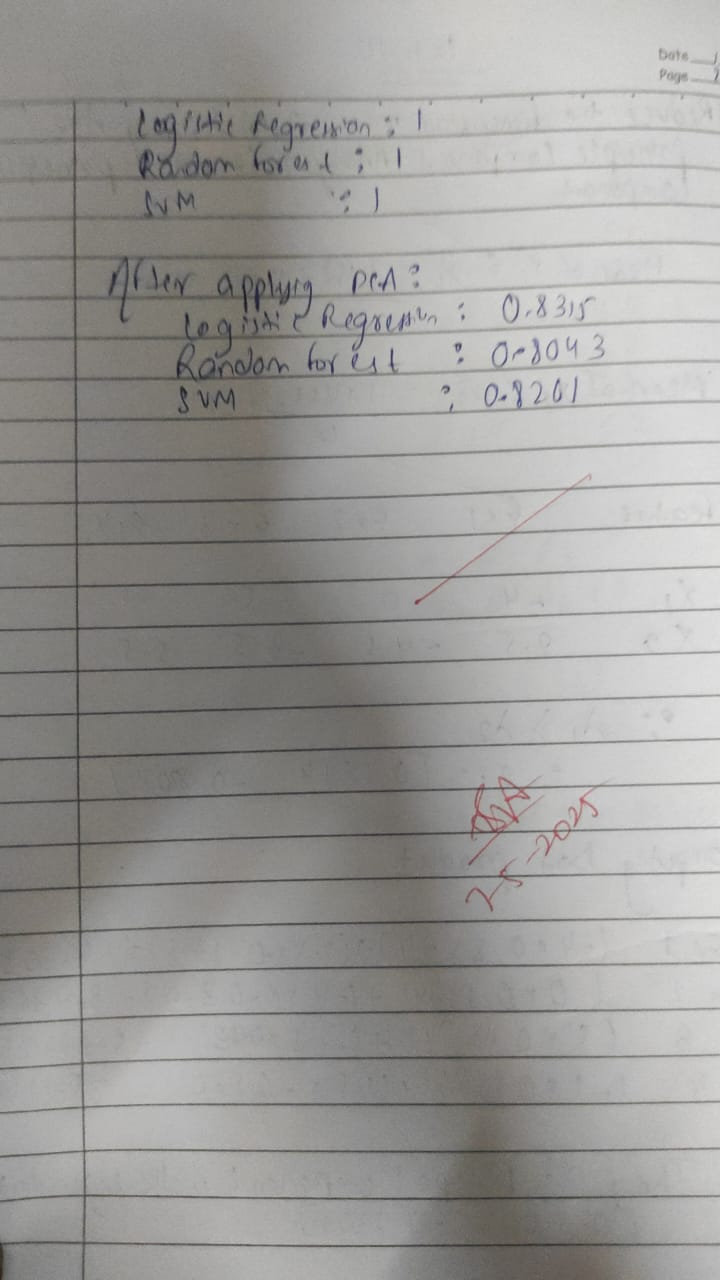 Date
Page
Logistic Regression : 1
Random forest : 1
SVM : 1
After applying PCA :
Logistic Regression : 0.8315
Random forest : 0.8043
SVM : 0.8261
2-5-2025